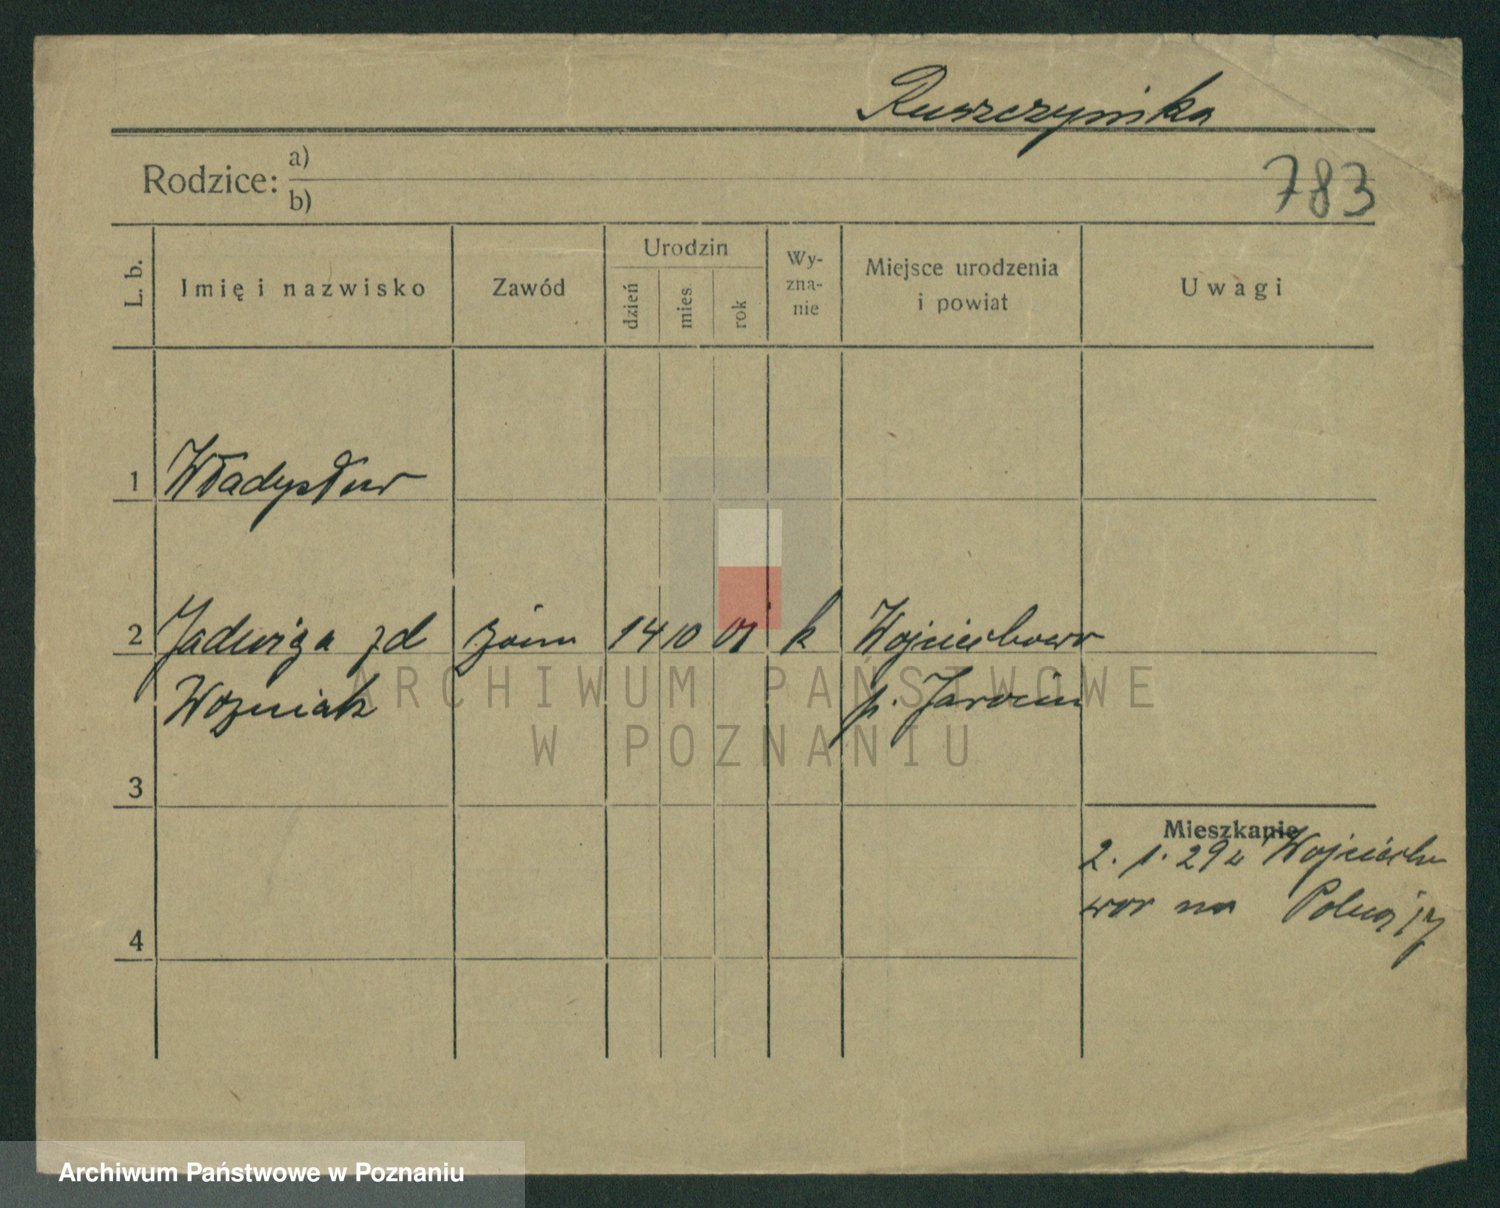 Ruszczyńska
Rodzice: a)
b)
783
L. b.
Imię i nazwisko
Zawód
Urodzin
dzień
mies
rok
Wy-
zna-
nie
Miejsce urodzenia
i powiat
Uwagi
1 Władysław
2 Jadwiga zd 14 10 01 k Wojciechowo
Woźniak p. Jarocin
3
Mieszkanie
2. 1. 29 z Wojciecho
wa na Polną 17
4
ARCHIWUM PAŃSTWOWE
W POZNANIU
Archiwum Państwowe w Poznaniu